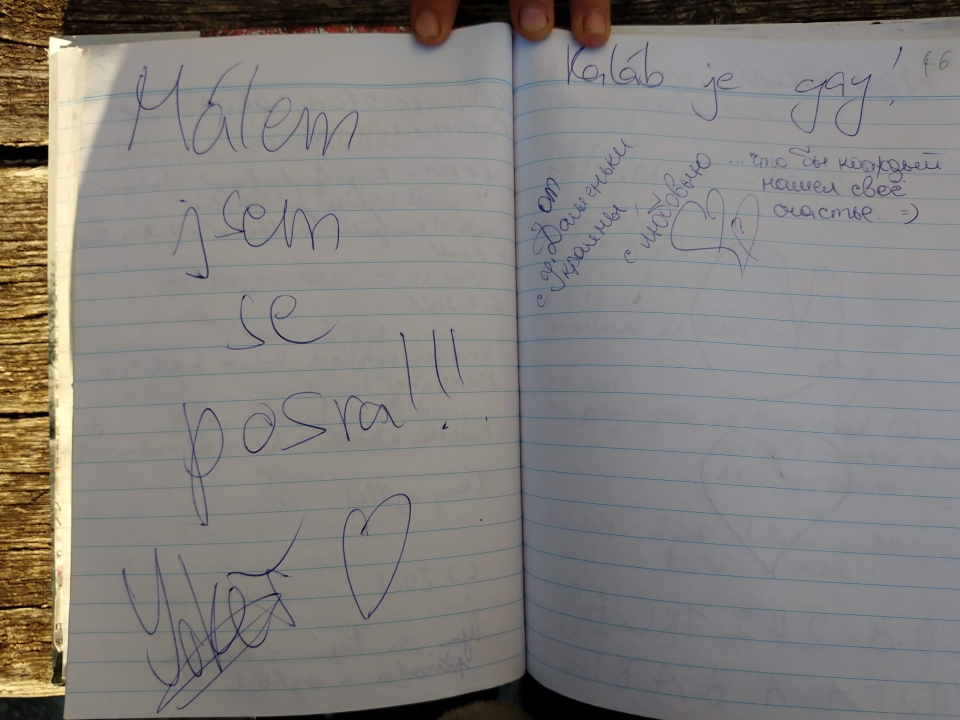 Málem
jsem
se
posral!!!
Kaláb je gay!
46
от
Дашеньки
с Украины
с любовью
...что бы каждый
нашел своё
счастье =)